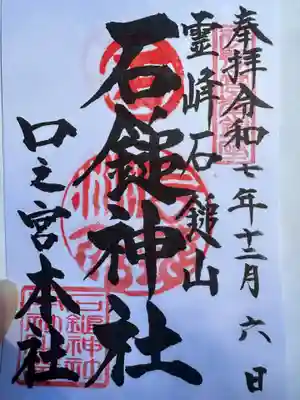 奉拝令和七年十二月六日
霊峰石鎚山
石鎚神社
口之宮本社